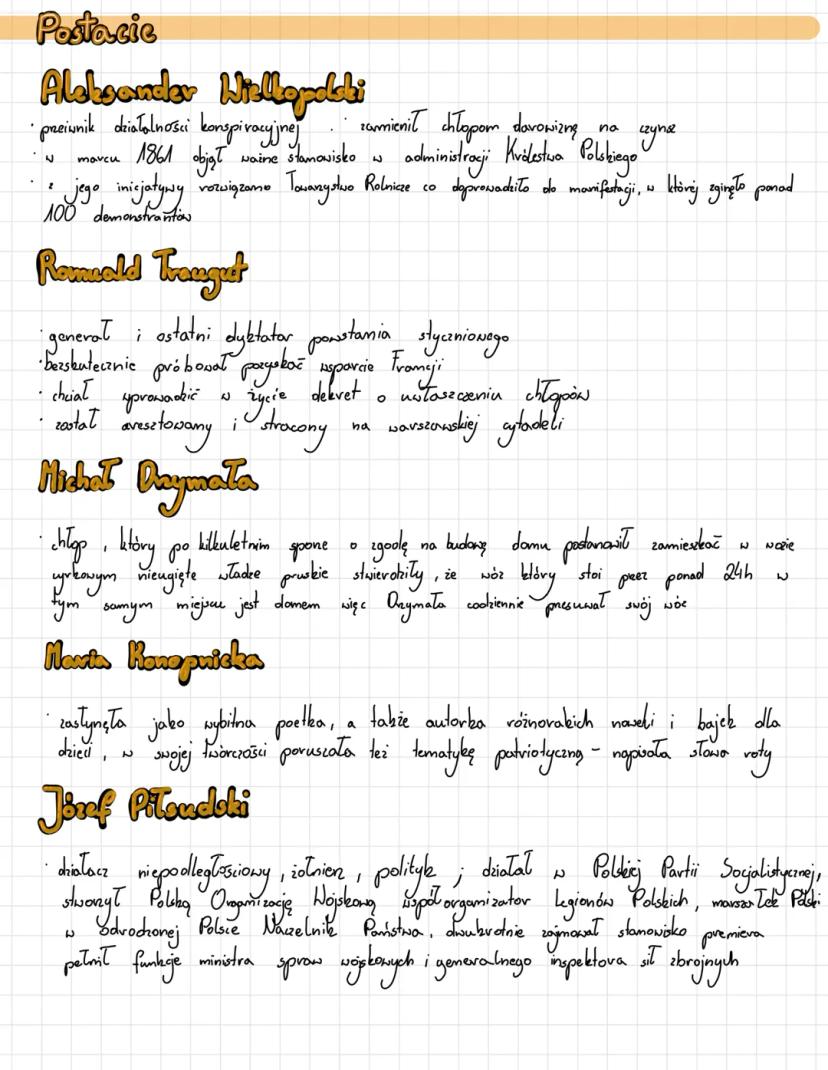 Postacie
Aleksander Wielkopolski
· przeciwnik działalności konspiracyjnej · zamienił chłopom darowiznę na czynsz
· w marcu 1861 objął ważne stanowisko w administracji Królestwa Polskiego
· z jego inicjatywy rozwiązano Towarzystwo Rolnicze co doprowadziło do manifestacji, w której zginęło ponad
100 demonstrantów
Romuald Traugut
· generał i ostatni dyktator powstania styczniowego
· bezskutecznie próbował pozyskać wsparcie Francji
· chciał wprowadzić w życie dekret o uwłaszczeniu chłopów
· został aresztowany i stracony na warszawskiej cytadeli
Michał Drzymała
· chłop, który po kilkuletnim sporze o zgodę na budowę domu postanowił zamieszkać w wozie
cyrkowym nieugięte władze pruskie stwierdziły, że wóz który stoi przez ponad 24h w
tym samym miejscu jest domem więc Drzymała codziennie przesuwał swój wóz
Maria Konopnicka
· zasłynęła jako wybitna poetka, a także autorka różnorakich noweli i bajek dla
dzieci, w swojej twórczości poruszała też tematykę patriotyczną - napisała słowa roty
Józef Piłsudski
· działacz niepodległościowy, żołnierz, polityk ; działał w Polskiej Partii Socjalistycznej,
stworzył Polską Organizację Wojskową współorganizator Legionów Polskich, marszałek Polski
w odrodzonej Polsce Naczelnik Państwa, dwukrotnie zajmował stanowisko premiera
pełnił funkcje ministra spraw wojskowych i generalnego inspektora sił zbrojnych